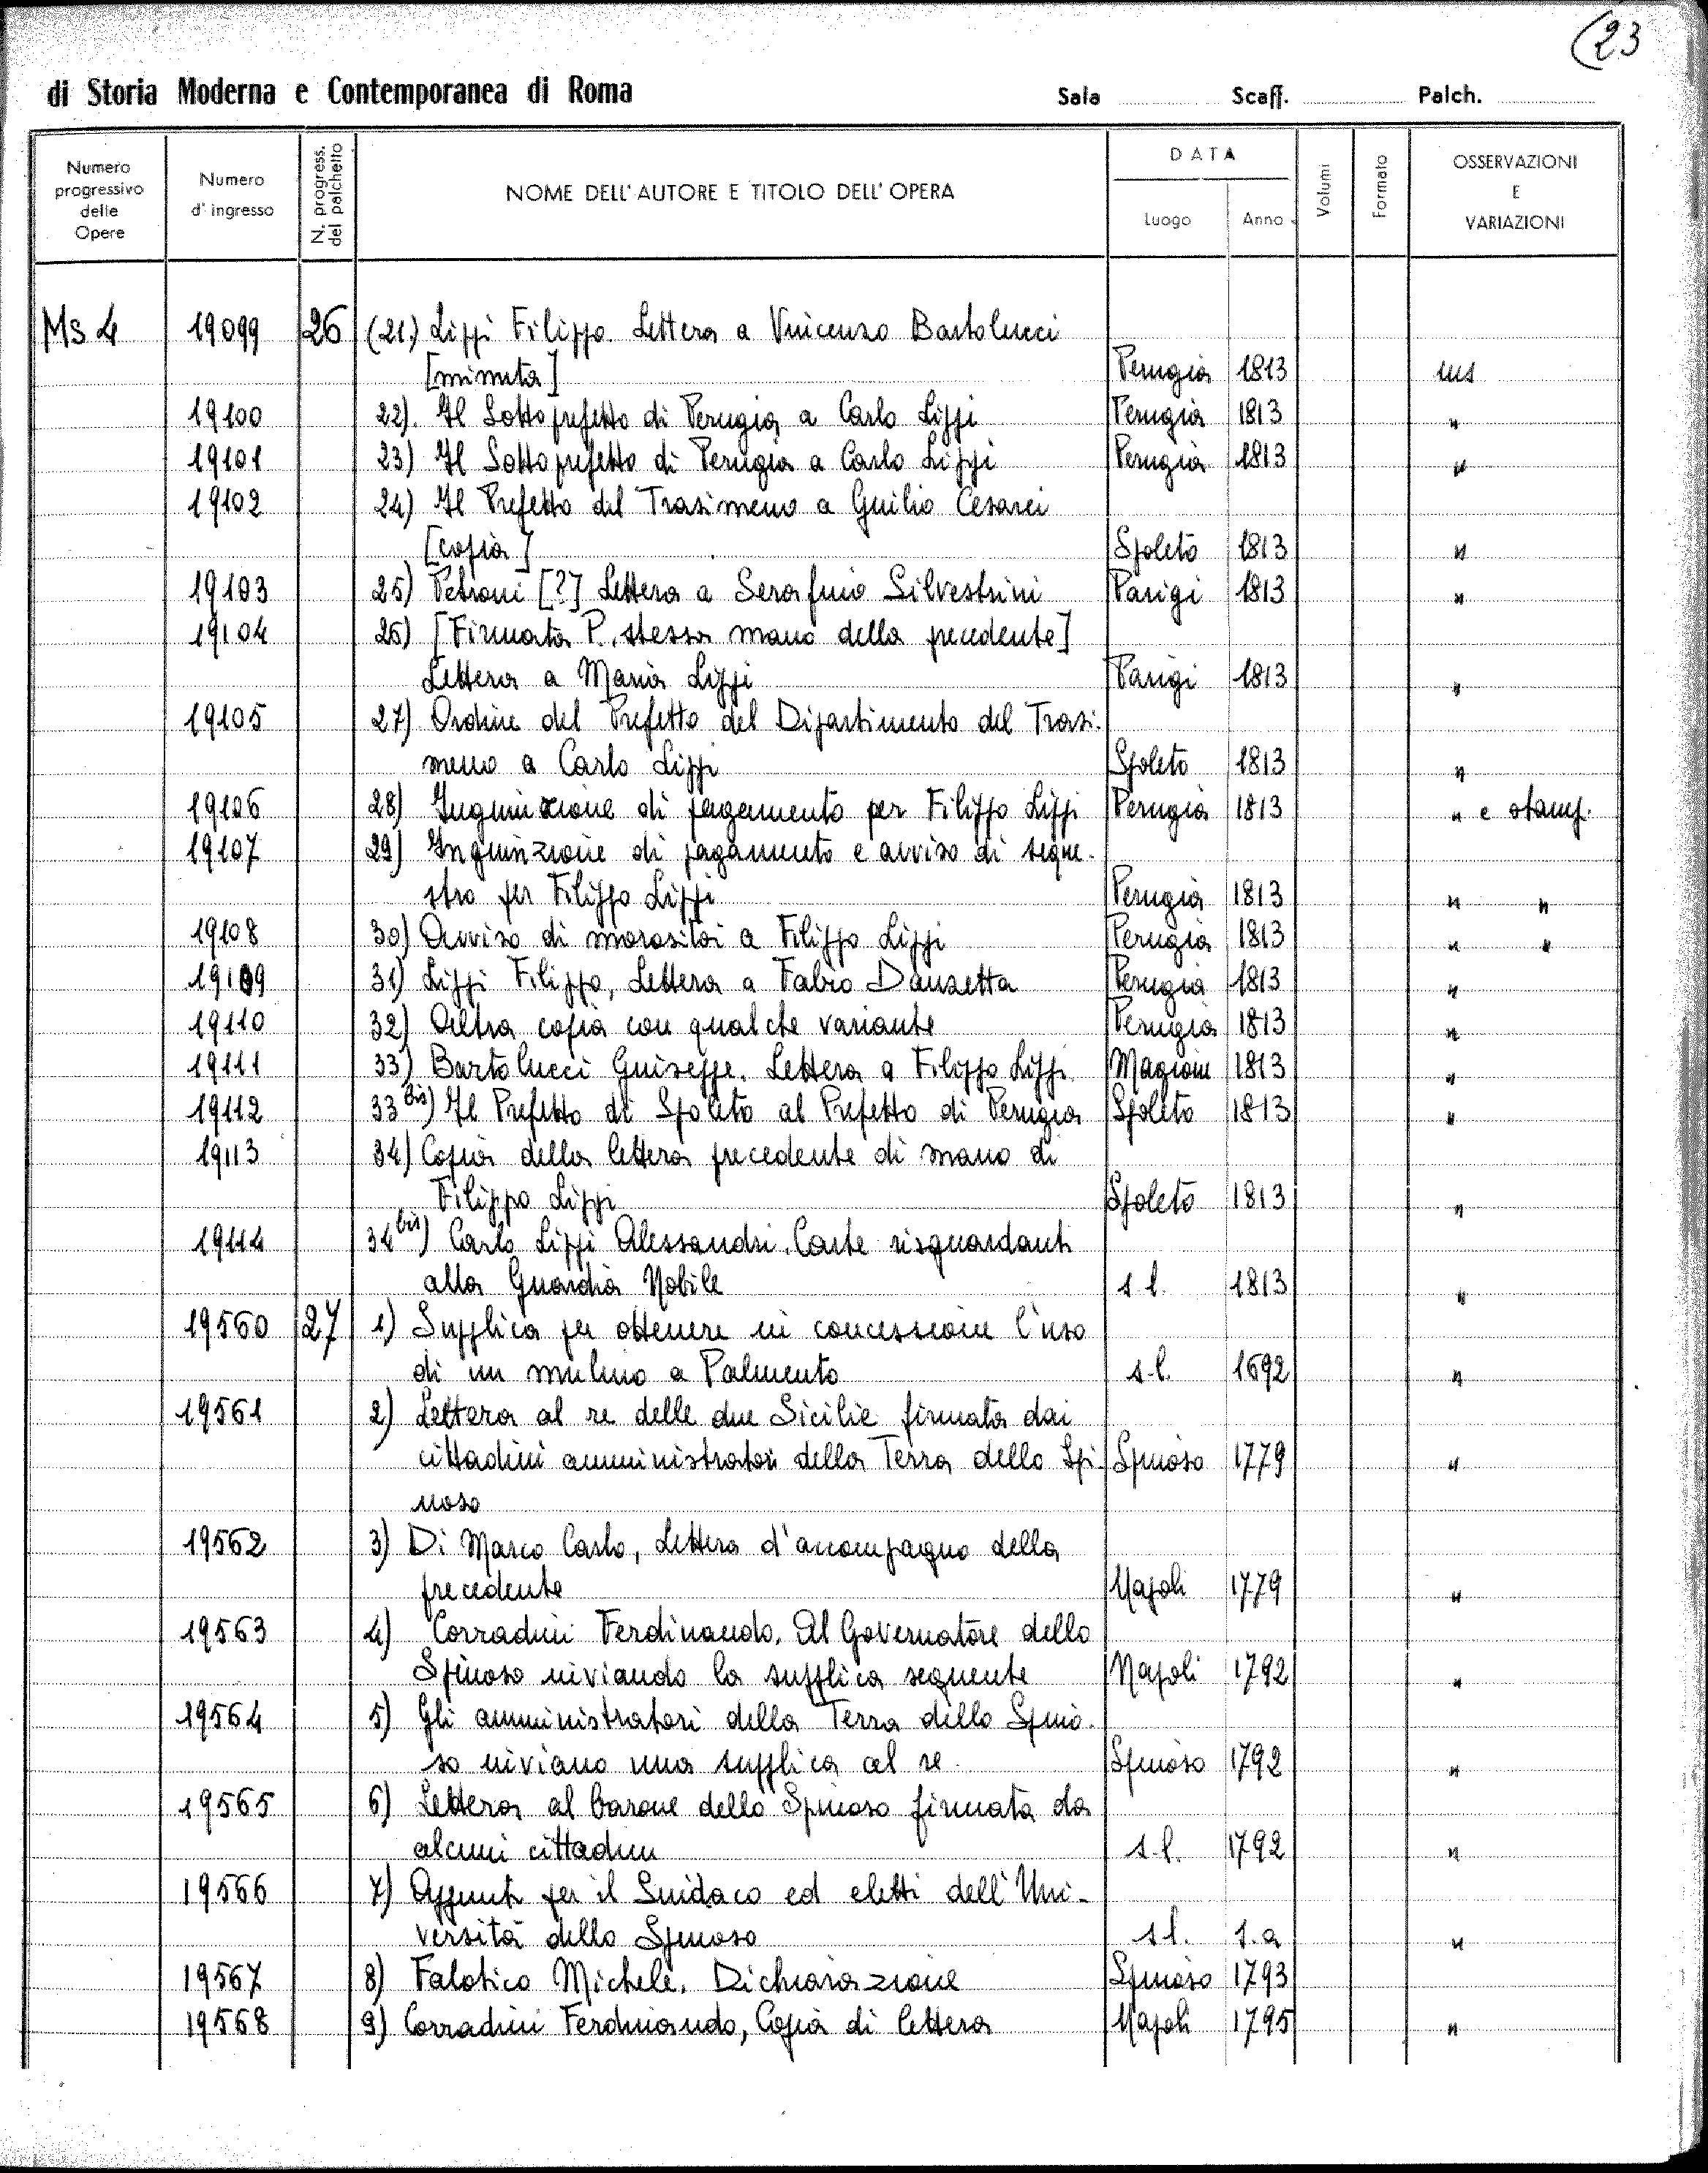 (23
di Storia Moderna e Contemporanea di Roma Sala Scaff. Palch.
Numero progressivo delle Opere
Numero d'ingresso
N. progress. del palchetto
NOME DELL'AUTORE E TITOLO DELL'OPERA
DATA
Luogo Anno
Volumi
Formato
OSSERVAZIONI E VARIAZIONI
Ms 4 19099 26 (21) Lippi Filippo. Lettera a Vincenzo Bartolucci
[minuta] Perugia 1813 ms
19100 22). Il Sottoprefetto di Perugia a Carlo Lippi Perugia 1813 "
19101 23) Il Sottoprefetto di Perugia a Carlo Lippi Perugia 1813 "
19102 24) Il Prefetto del Trasimeno a Guilio Cesarei
[copia] Spoleto 1813 "
19103 25) Petroni [?] Lettera a Serafino Silvestrini Parigi 1813 "
19104 26) [Firmata P. stessa mano della precedente]
Lettera a Maria Lippi Parigi 1813 "
19105 27) Ordine del Prefetto del Dipartimento del Trasi-
meno a Carlo Lippi Spoleto 1813 "
19106 28) Ingiunzione di pagamento per Filippo Lippi Perugia 1813 " e stamp.
19107 29) Ingiunzione di pagamento e avviso di seque-
stro per Filippo Lippi Perugia 1813 " "
19108 30) Avviso di morosità a Filippo Lippi Perugia 1813 " "
19109 31) Lippi Filippo, Lettera a Fabio Danzetta Perugia 1813 "
19110 32) Altra copia con qualche variante Perugia 1813 "
19111 33) Bartolucci Guiseppe. Lettera a Filippo Lippi Magione 1813 "
19112 33 bis) Il Prefetto di Spoleto al Prefetto di Perugia Spoleto 1813 "
19113 34) Copia della lettera precedente di mano di
Filippo Lippi Spoleto 1813 "
19114 34 bis) Carlo Lippi Alessandri. Carte risguardanti
alla Guardia Nobile s l. 1813 "
19560 27 1) Supplica per ottenere in concessione l'uso
di un mulino a Palmento s.l. 1692 "
19561 2) Lettera al re delle due Sicilie firmata dai
cittadini amministratori della Terra dello Spi- Spinoso 1779 "
noso
19562 3) Di Marco Carlo, Lettera d'accompagno della
precedente Napoli 1779 "
19563 4) Corradini Ferdinando. Al Governatore dello
Spinoso inviando la supplica seguente Napoli 1792 "
19564 5) Gli amministratori della Terra dello Spino-
so inviano una supplica al re Spinoso 1792 "
19565 6) Lettera al barone dello Spinoso firmata da
alcuni cittadini s.l. 1792 "
19566 7) Appunti per il Sindaco ed eletti dell'Uni-
versità dello Spinoso s l. s.a "
19567 8) Falotico Michele. Dichiarazione Spinoso 1793
19568 9) Corradini Ferdinando, Copia di lettera Napoli 1795 "